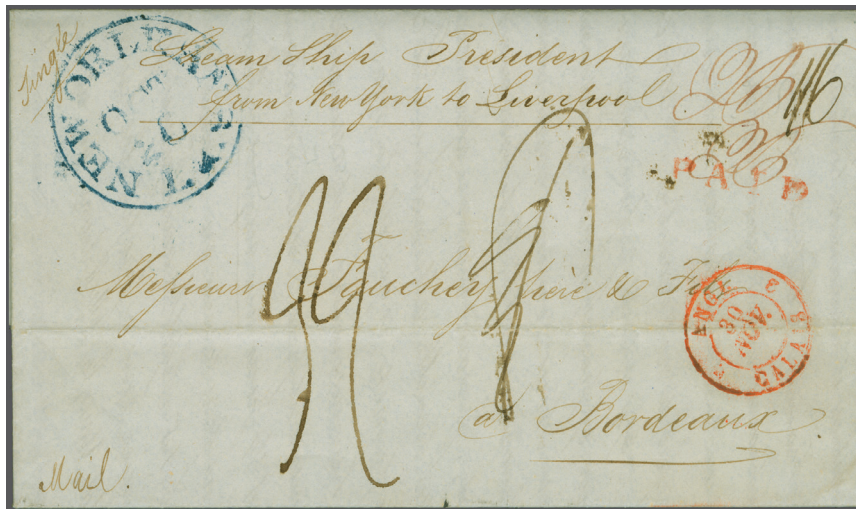 Single
NEW ORLEANS
OCT
Steam Ship President
from New York to Liverpool
PAID
Messieurs Fauchey, père & Fils
ANGL. 2
30
NOV.
CALAIS
à Bordeaux
Mail.